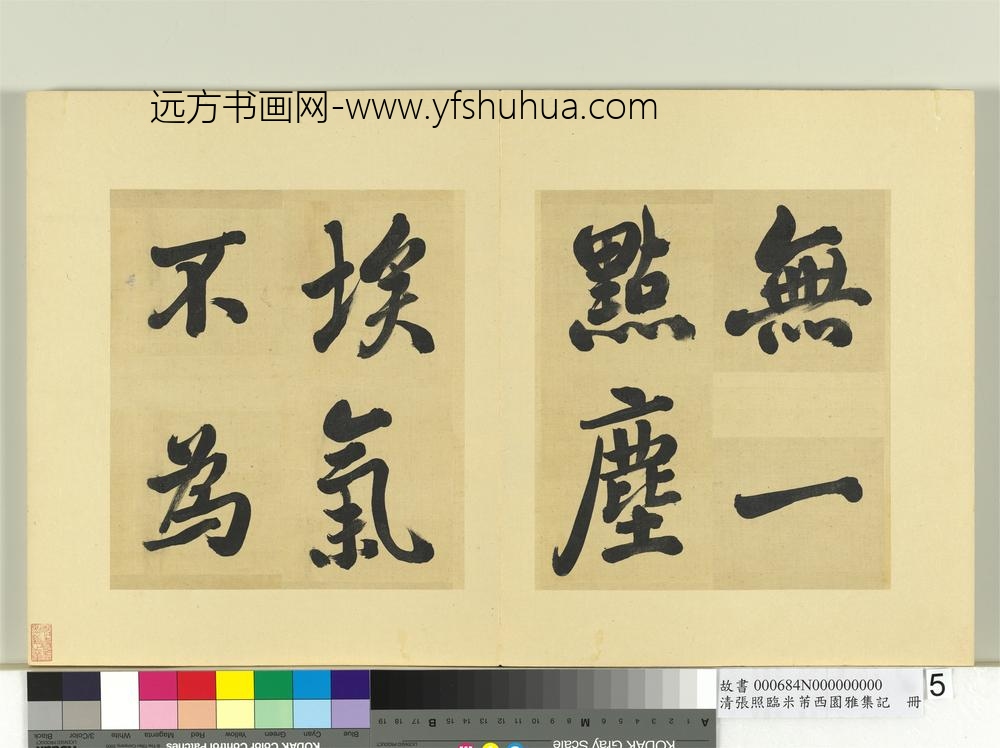 远方书画网-www.yfshuhua.com
無一
點塵
埃氣
不為
故書 000684N000000000
清張照臨米芾西園雅集記 冊
5
Black
3/Color
White
Magenta
Red
Yellow
Green
Cyan
Blue
KODAK Color Control Patches
KODAK Gray Scale
A 1 2 3 4 5 6 M 8 9 10 11 12 13 14 15 B 17 18 19